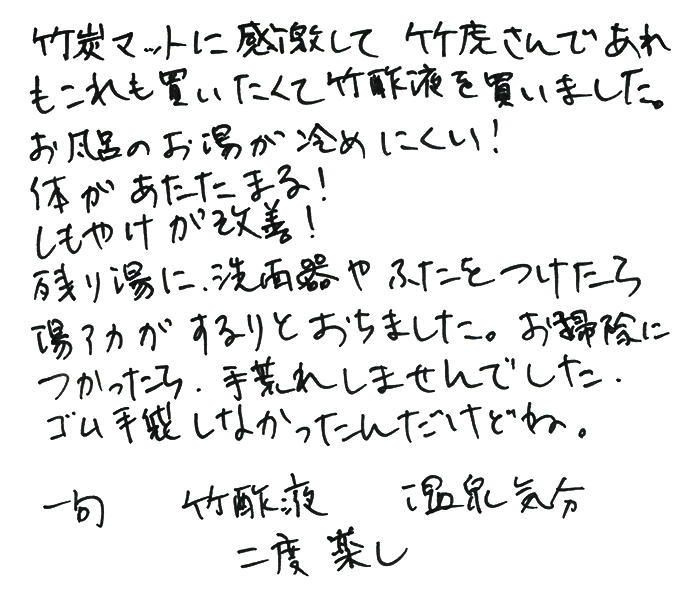 竹炭マットに感激して 竹虎さんであれ
もこれも買いたくて竹酢液を買いました。
お風呂のお湯が冷めにくい!
体があたたまる!
しもやけが改善!
残り湯に、洗面器やふたをつけたら
湯アカがするりとおちました。お掃除に
つかったら、手荒れしませんでした。
ゴム手袋しなかったんだけどね。
一句 竹酢液 温泉気分
二度楽し